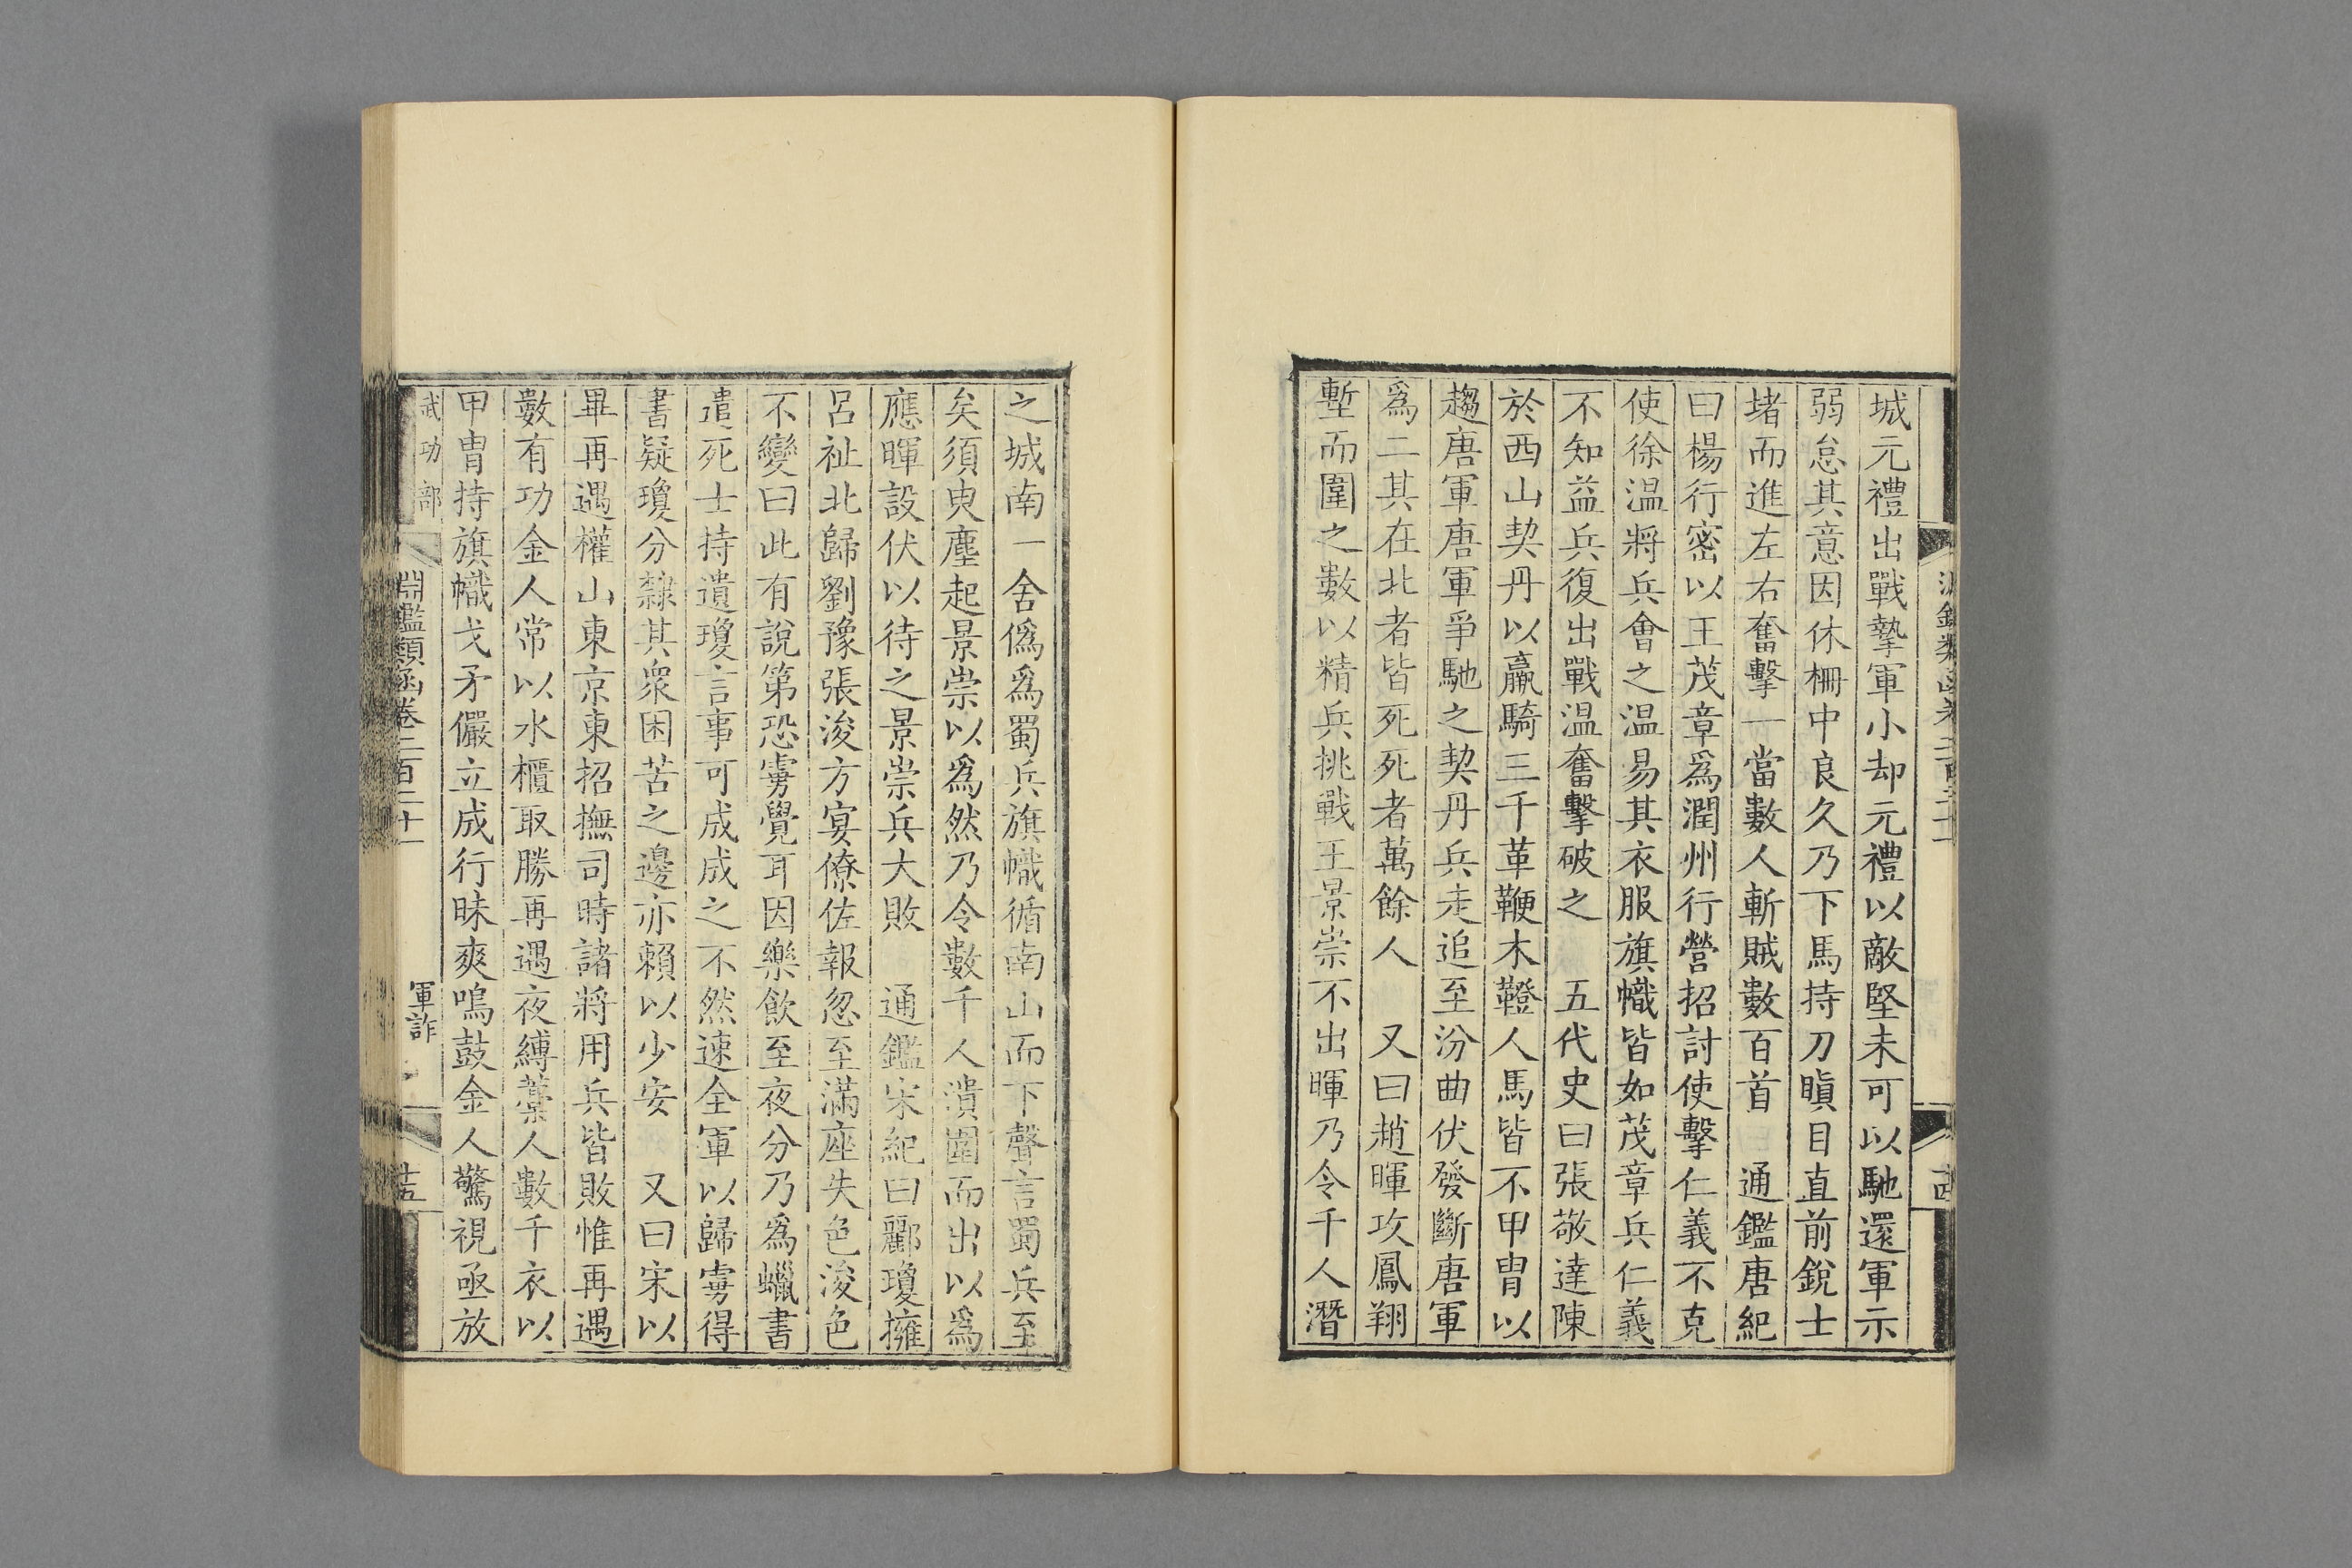 城元禮出戰摯軍小却元禮以敵堅未可以馳還軍示
弱怠其意因休柵中良久乃下馬持刀瞋目直前銳士
堵而進左右奮擊一當數人斬賊數百首　通鑑唐紀
曰楊行密以王茂章爲潤州行營招討使擊仁義不克
使徐温將兵會之温易其衣服旗幟皆如茂章兵仁義
不知益兵復出戰温奮擊破之　五代史曰張敬達陳
於西山契丹以羸騎三千革鞭木鞾人馬皆不甲胄以
趨唐軍唐軍爭馳之契丹兵走追至汾曲伏發斷唐軍
爲二其在北者皆死死者萬餘人　又曰趙暉攻鳳翔
塹而圍之數以精兵挑戰王景崇不出暉乃令千人潛
之城南一舍僞爲蜀兵旗幟循南山而下聲言蜀兵至
矣須臾塵起景崇以爲然乃令數千人潰圍而出以爲
應暉設伏以待之景崇兵大敗　通鑑宋紀曰酈瓊擁
呂祉北歸劉豫張浚方宴僚佐報忽至滿座失色浚色
不變曰此有說第恐雱覺耳因樂飲至夜分乃爲蠟書
遣死士持遺瓊言事可成成之不然速全軍以歸雱得
書疑瓊分隸其衆困苦之邊亦賴以少安　又曰宋以
畢再遇權山東京東招撫司時諸將用兵皆敗惟再遇
數有功金人常以水櫃取勝再遇夜縛藁人數千衣以
甲胄持旗幟戈矛儼立成行昧爽鳴鼓金人驚視亟放
武功部　淵鑑類函卷二百二十一　軍詐　十五